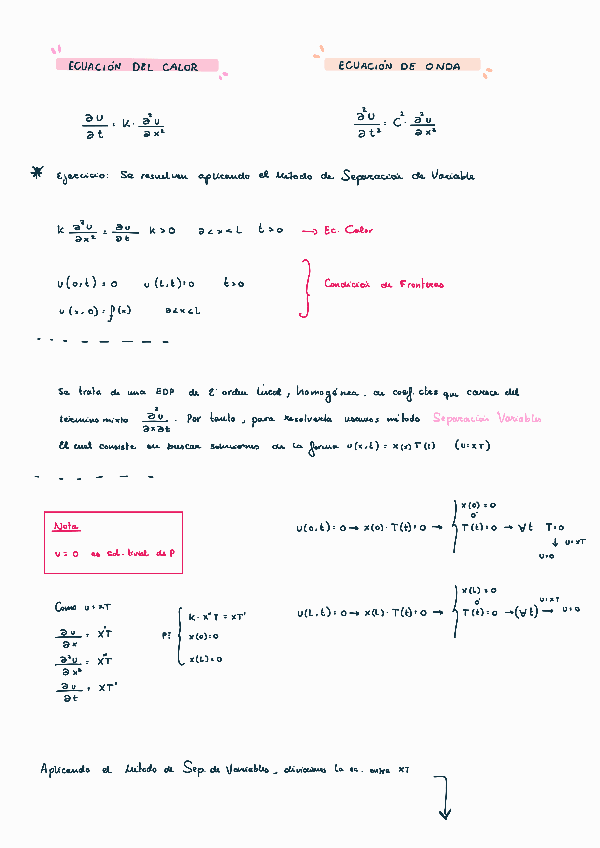 ECUACIÓN DEL CALOR
ECUACIÓN DE ONDA
∂u/∂t = K · ∂²u/∂x²
∂²u/∂t² = C² · ∂²u/∂x²
* Ejercicio: Se resuelven aplicando el Método de Separación de Variable
K ∂²u/∂x² = ∂u/∂t K>0 0<x<L t>0 → Ec. Calor
u(0,t)=0 u(L,t)=0 t>0
u(x,0)=f(x) 0<x<L
Condición de Fronteras
Se trata de una EDP de 2º orden lineal, homogénea, de coef. ctes que carece del
término mixto ∂²u/∂x∂t. Por tanto, para resolverla usamos método Separación Variables
El cual consiste en buscar soluciones de la forma u(x,t) = X(x) T(t) (u=XT)
Nota
u = 0 es sol. trivial de P
u(0,t)=0 → X(0)·T(t)=0 → { X(0)=0
o
T(t)=0 → ∀t T=0
↓ u=XT
u=0
u(L,t)=0 → X(L)·T(t)=0 → { X(L)=0
o
T(t)=0 → (∀t) → u=0
u=XT
Como u=XT
∂u/∂x = X'T
∂²u/∂x² = X''T
∂u/∂t = XT'
P? { K·X''T = XT'
X(0)=0
X(L)=0
Aplicando el Método de Sep. de Variables, dividimos la ec. entre XT